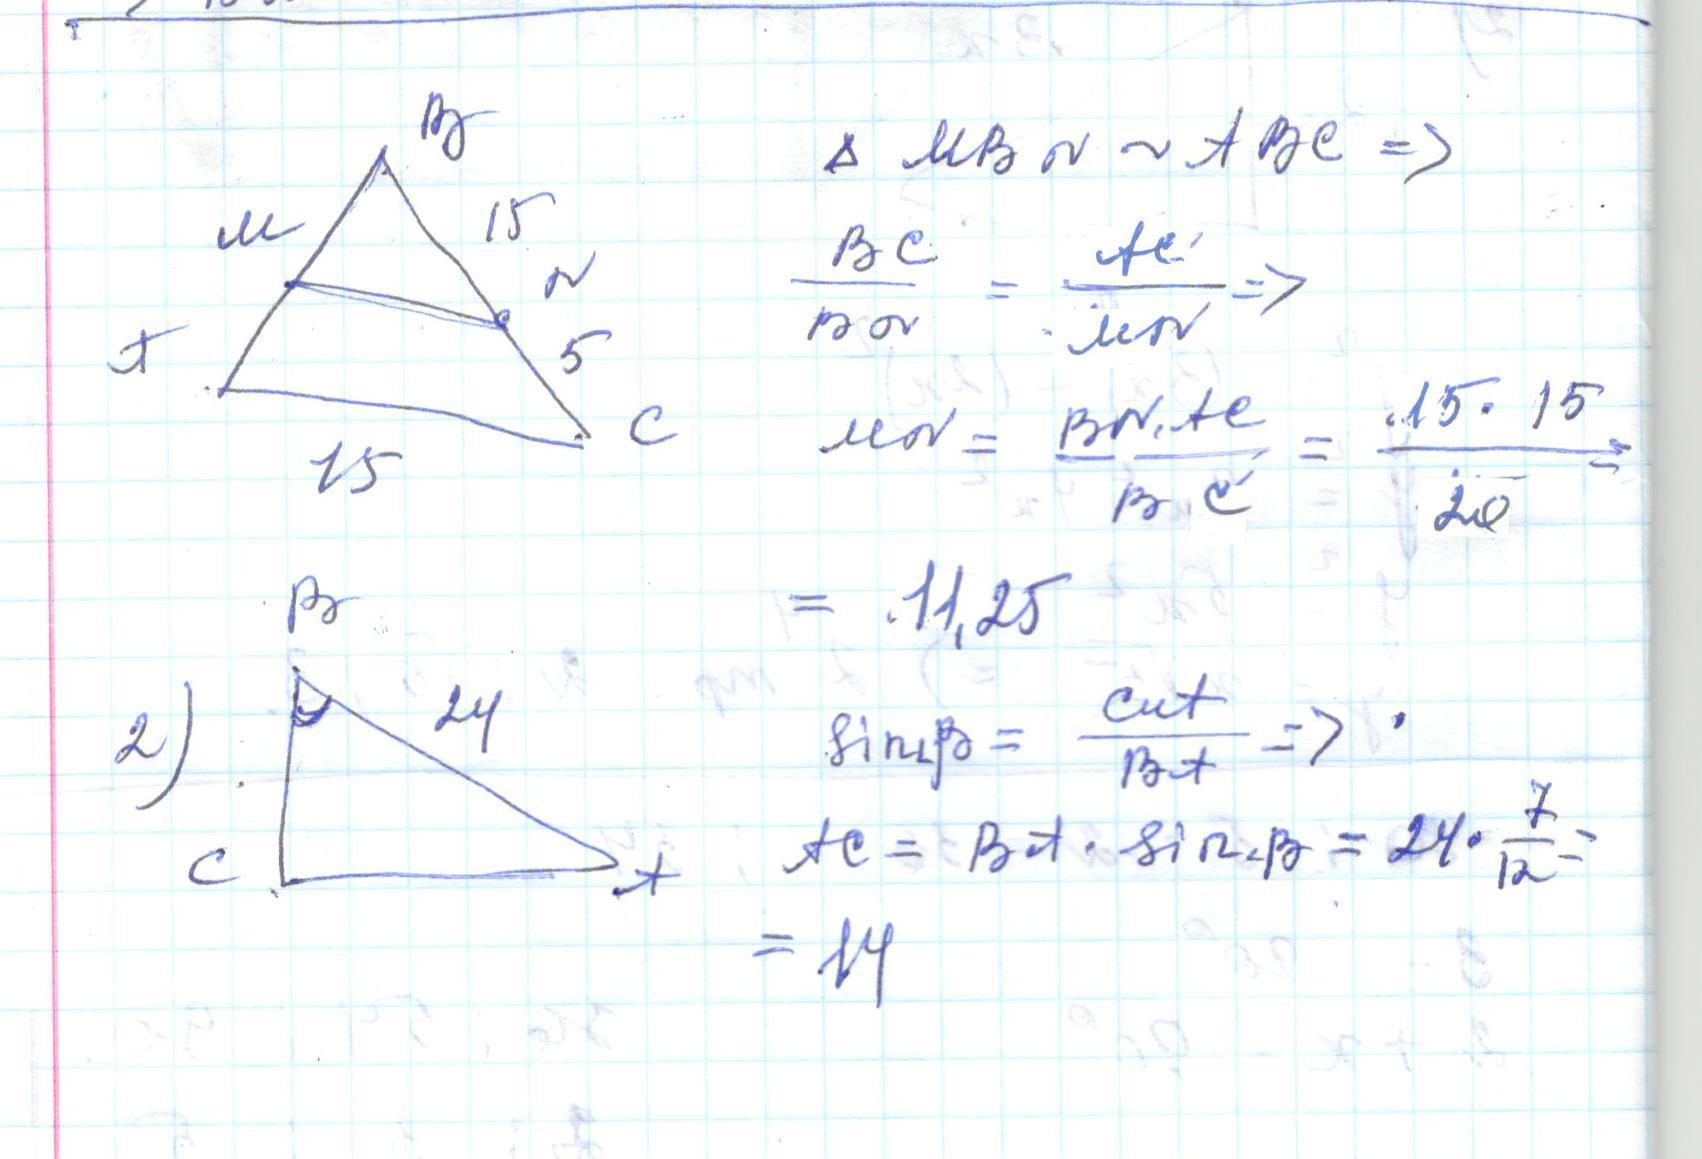 B
M 15
N
A 5
15 C
Δ MBN ~ ABC =>
BC/BN = AC/MN =>
MN = BN·AC/BC = 15·15/20 =
= 11,25
2)
B
24
C A
sin∠B = CA/BA =>
AC = BA·sin∠B = 24·7/12 =
= 14